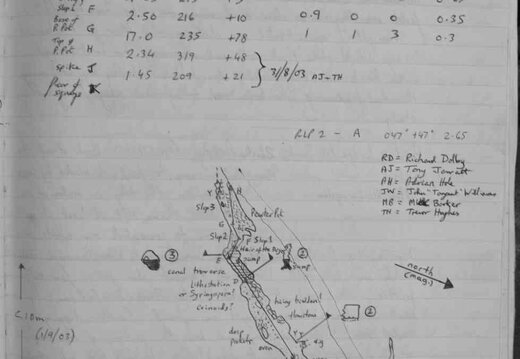 Slop 1 F 2.50 216 +10 0.9 0 0 0.35
Base of P.Pot G 17.0 235 +78 1 1 3 0.3
Top of P.Pot H 2.34 319 +48
spike J 1.45 209 +21 } 31/8/03 AJ-TH
squeeze K
RLP 2 - A 047° +47° 2.65
RD = Richard Dolby
AJ = Tony Jarratt
AH = Adrian Hole
JW = John "Tangent" Williams
MB = Barker
TH = Trevor Hughes
H
Slop 3
Powder Pot
G
Slop 2
F Slop 1
Hair of the Dog
sump
E
③
②
sump
canal traverse
Lithostrotion
or Syringopora?
crinoids?
D
heavy
flowstone
②
north
(mag.)
C.10m
(1/9/03)
deep
oven